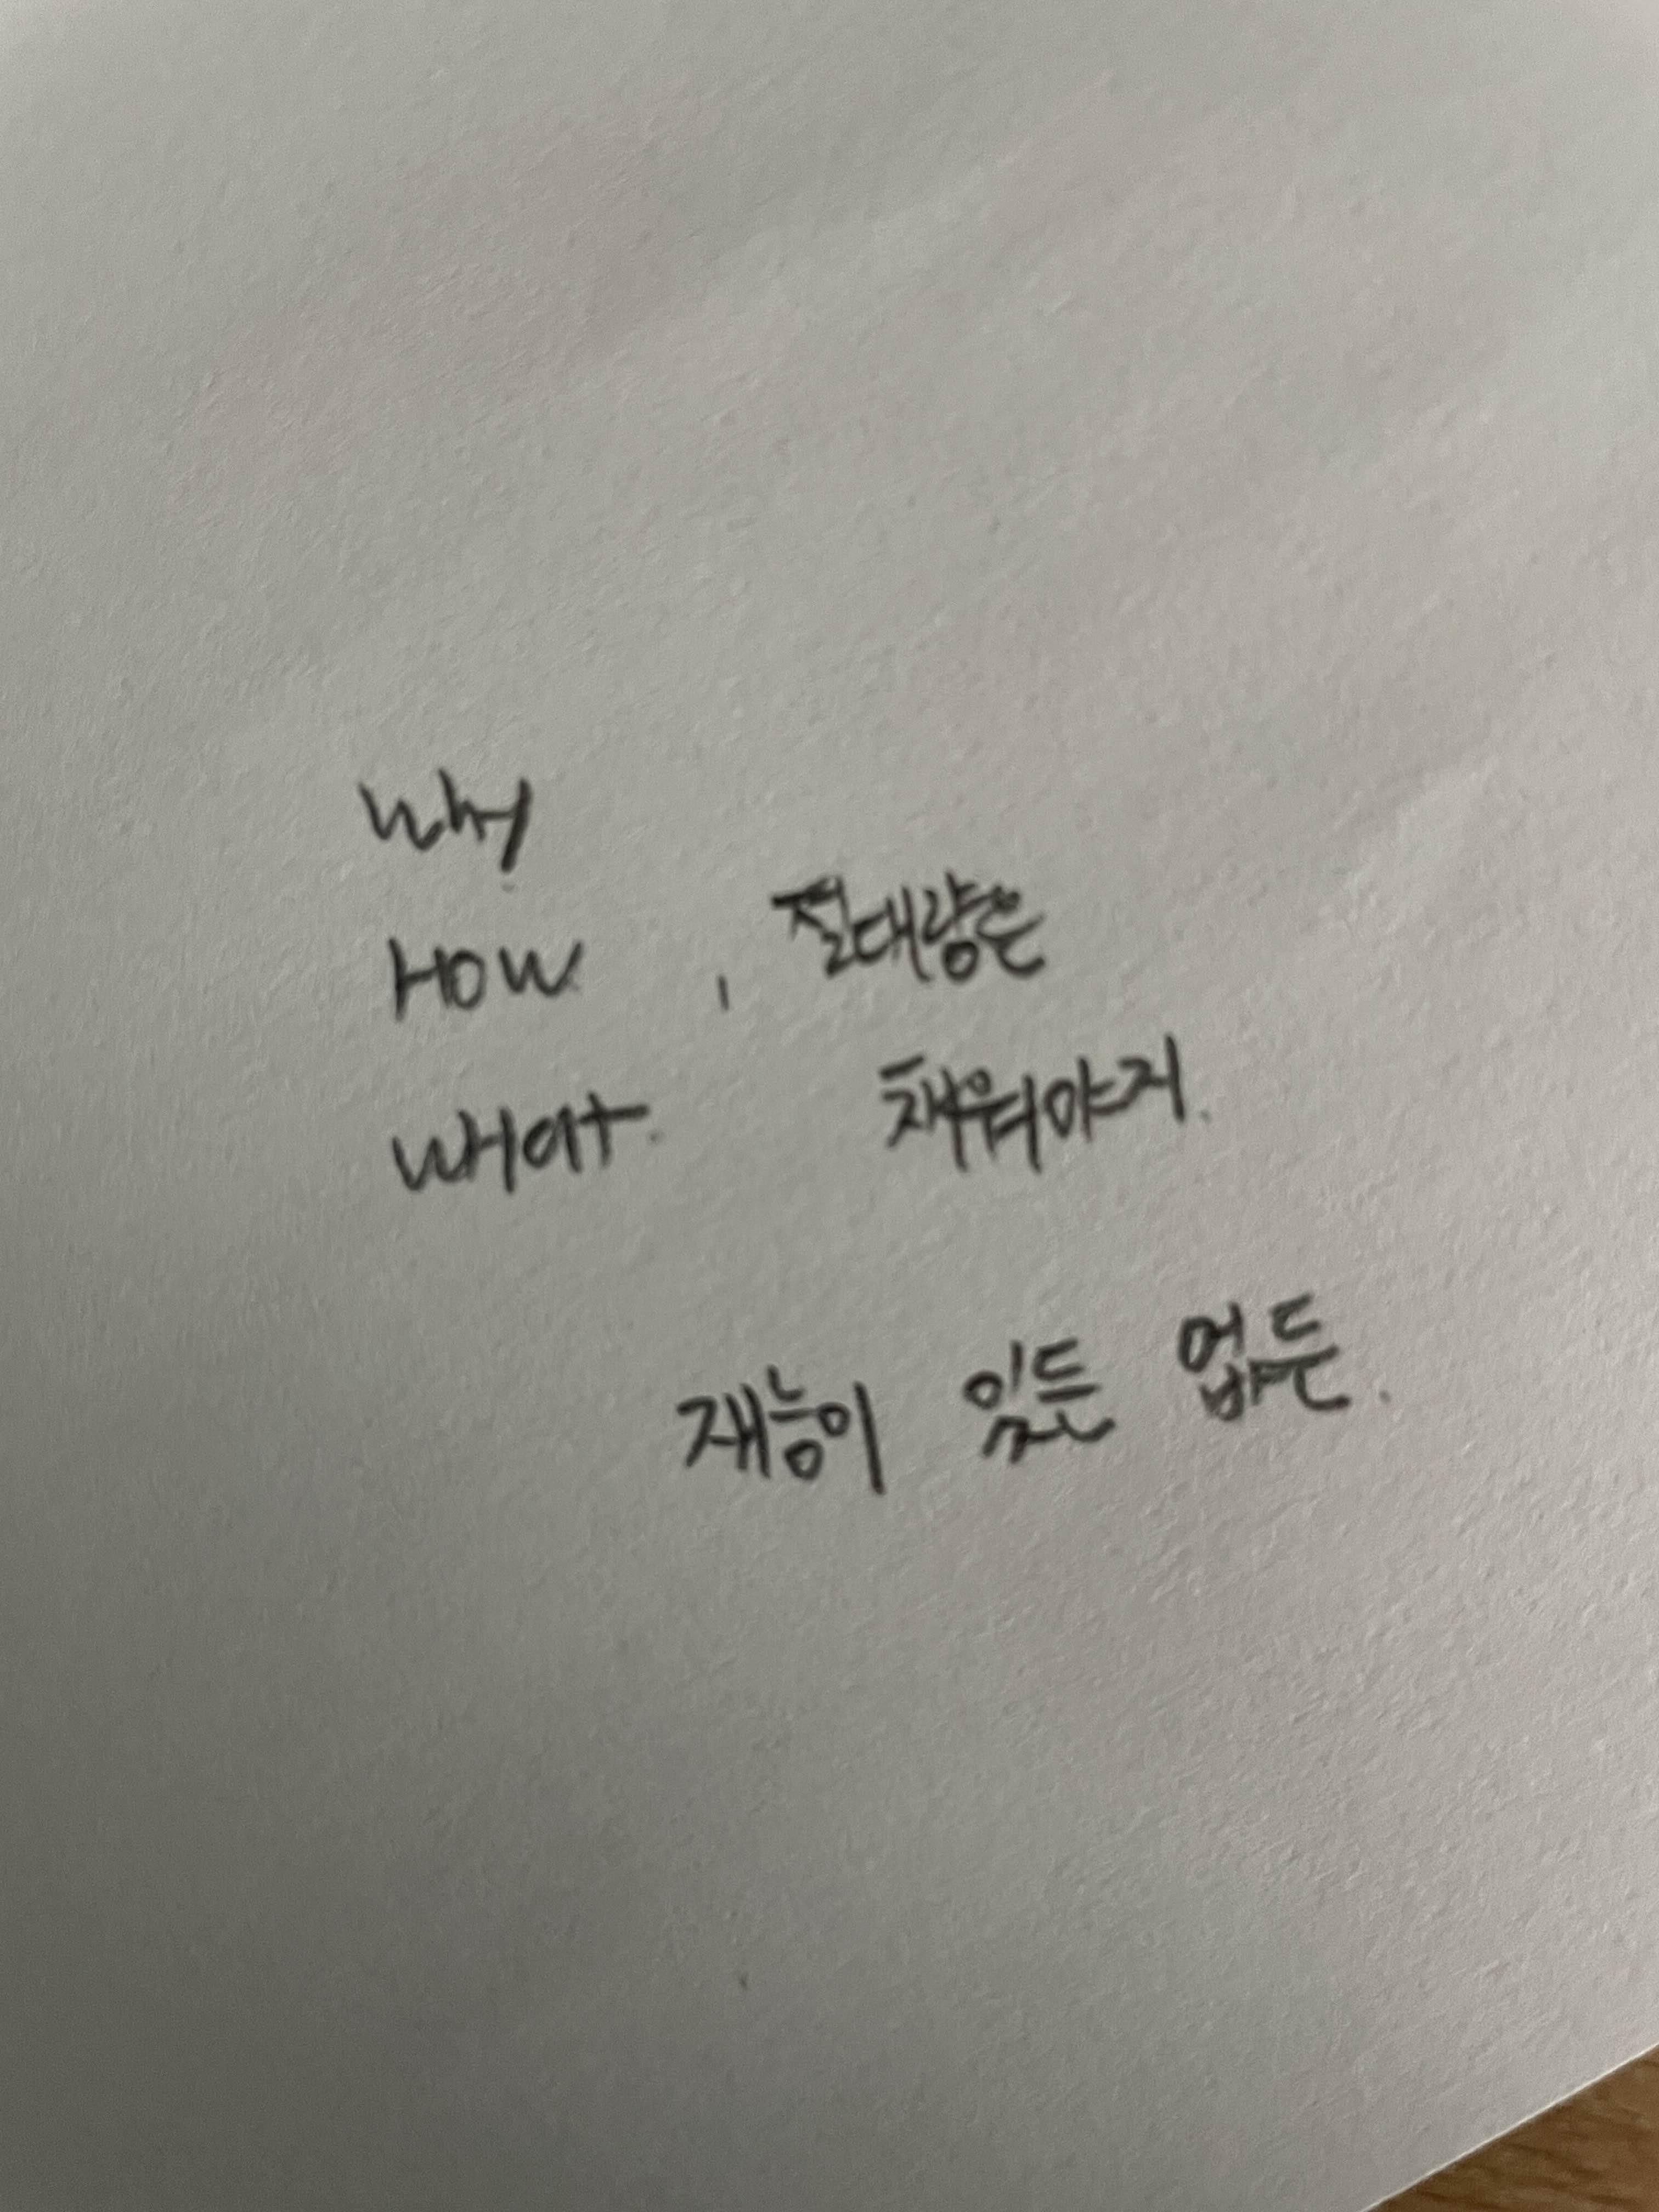 Why
HOW , 절대량은
WHat. 채워야지.
재능이 있든 없든.